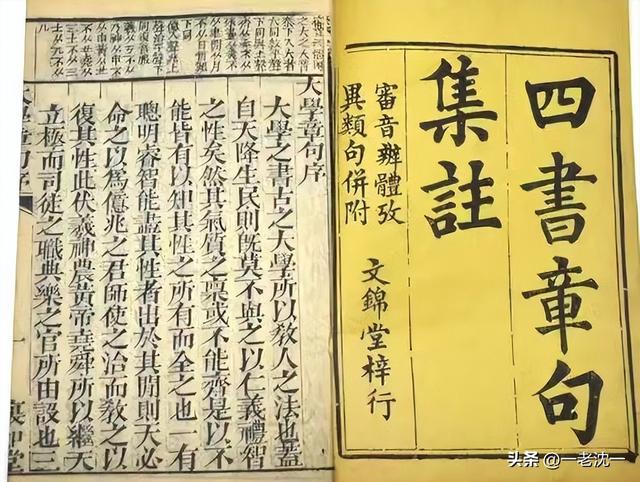 四書章句
集註
審音辨體攷
異類句併附
文錦堂梓行
大學章句序
大學之書古之大學所以教人之法也蓋
自天降生民則既莫不與之以仁義禮智
之性矣然其氣質之稟或不能齊是以不
能皆有以知其性之所有而全之也一有
聰明睿智能盡其性者出於其閒則天必
命之以爲億兆之君師使之治而教之以
復其性此伏羲神農黃帝堯舜所以繼天
立極而司徒之職典樂之官所由設也三
头条 @一老沈一